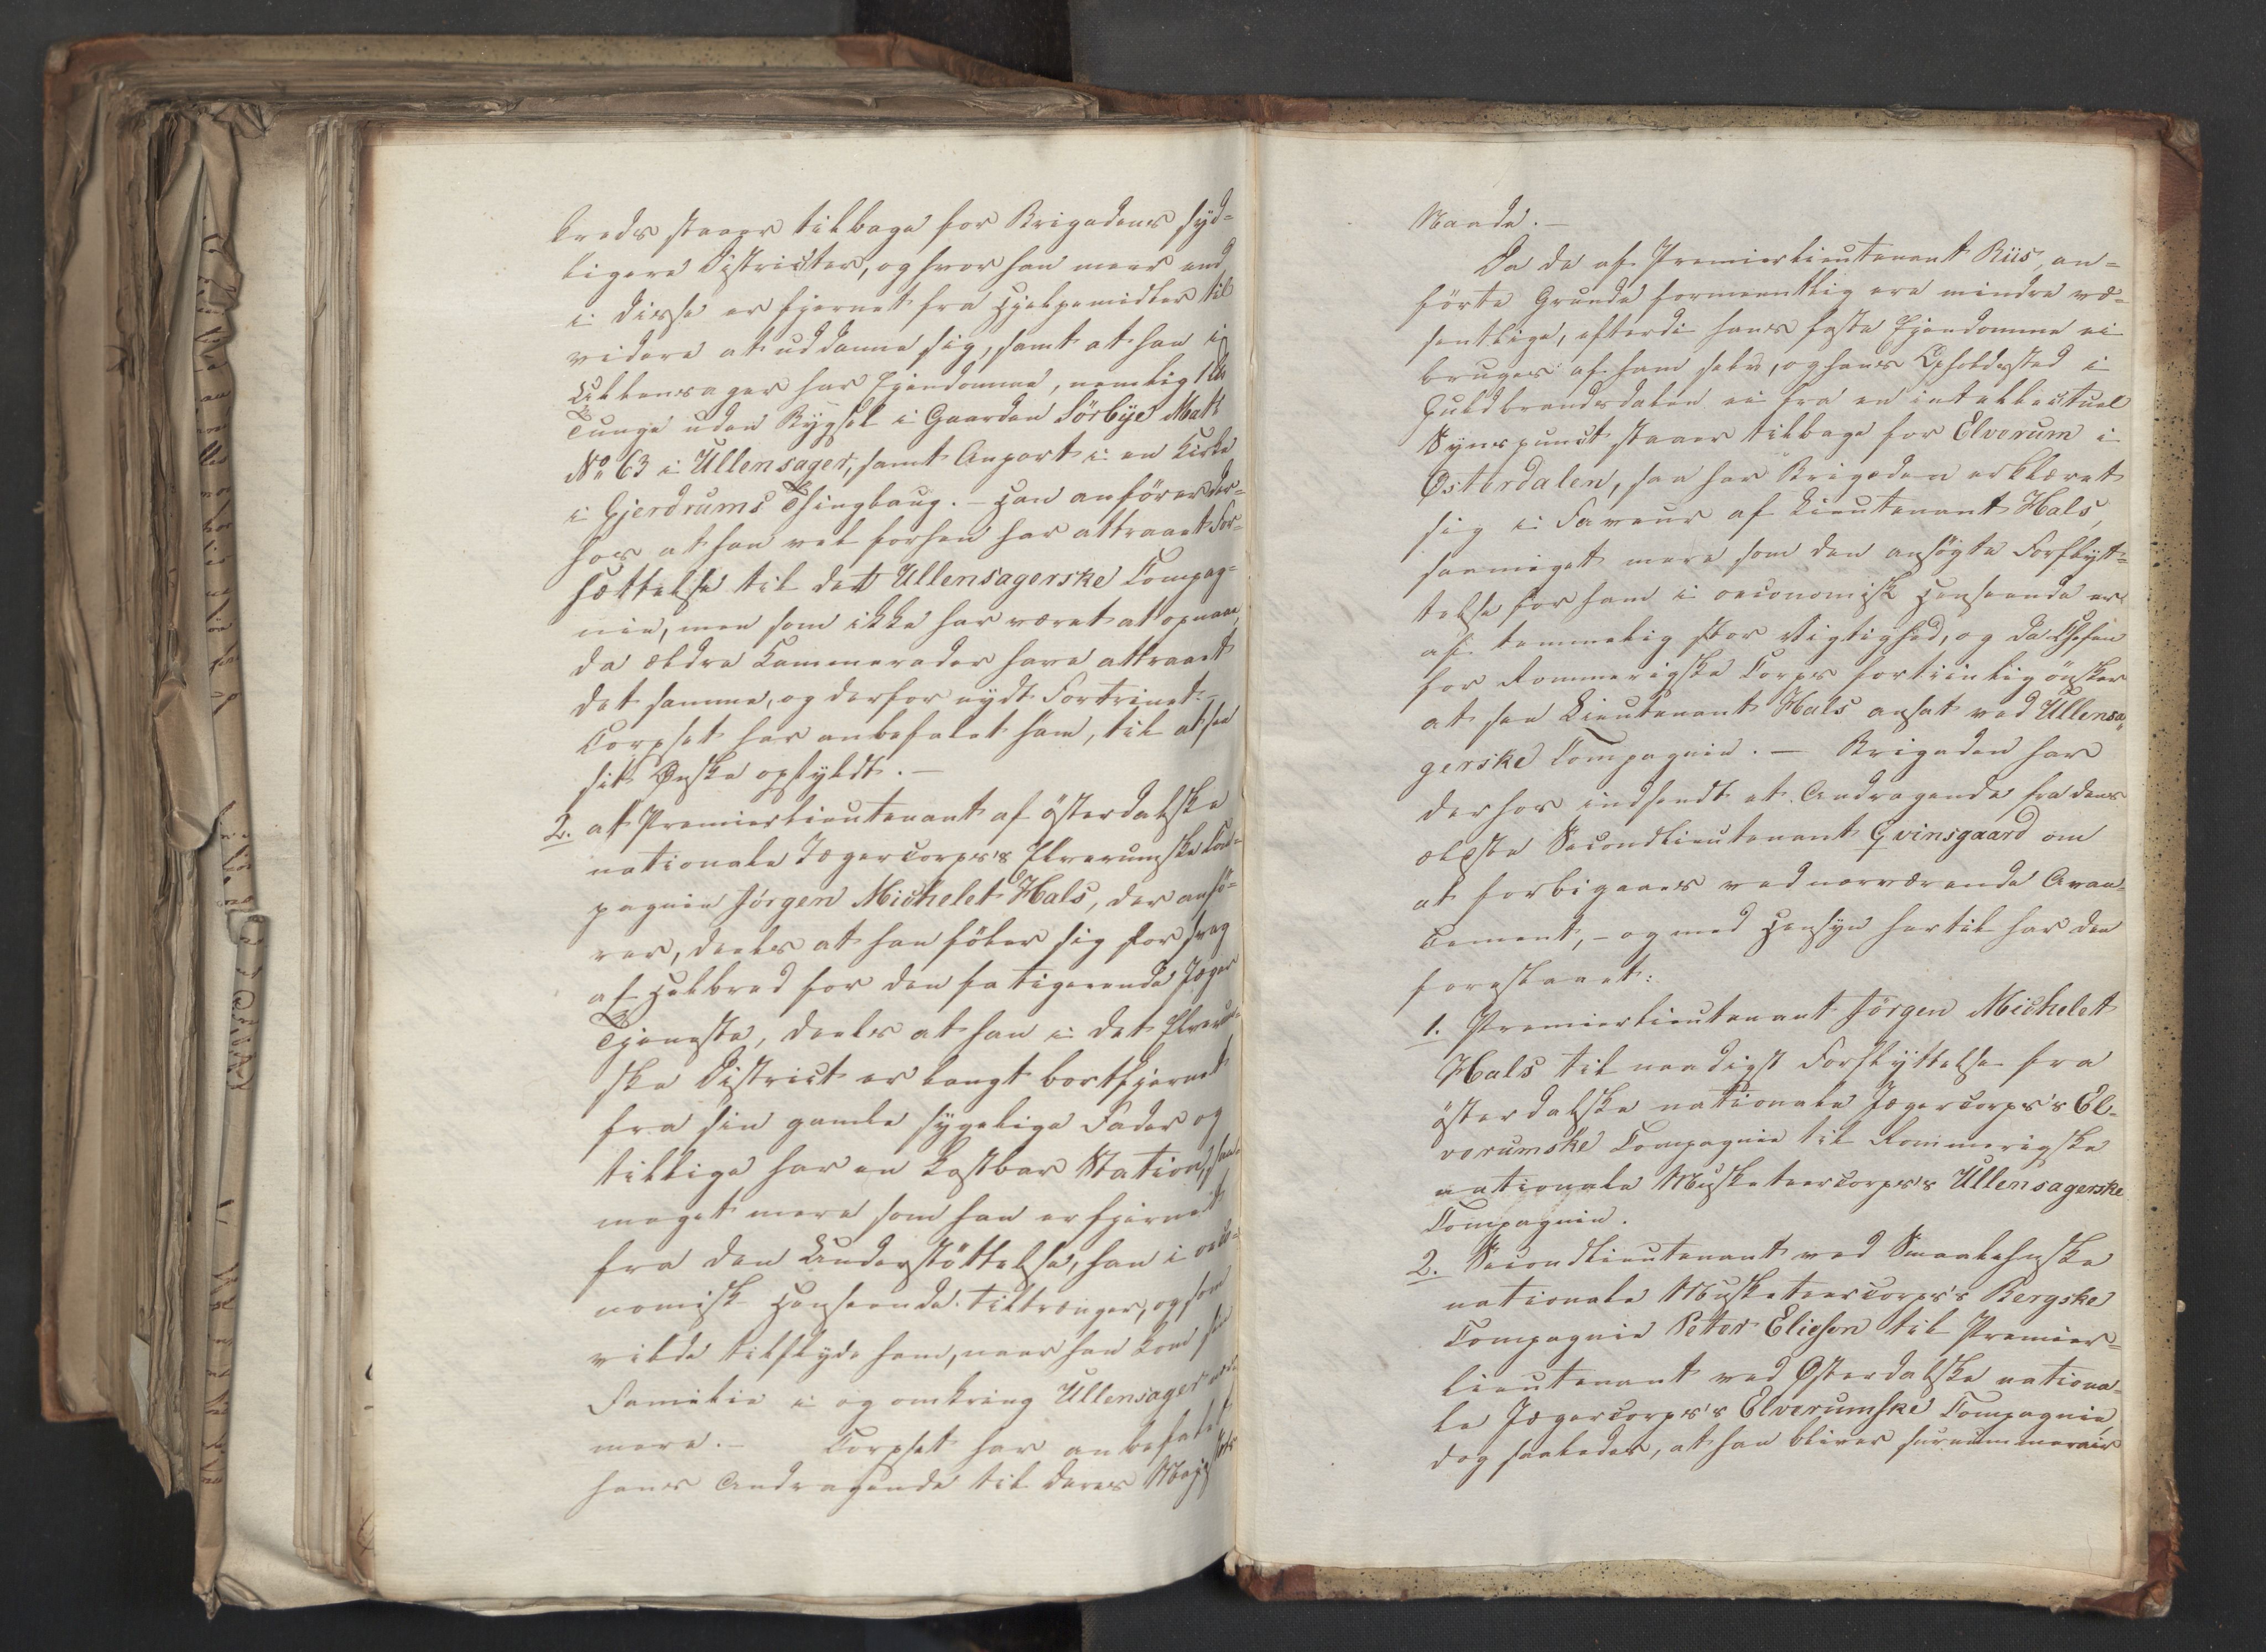 kreds staaer tilbage for Brigadens syd-
ligere Districter, og hvor han meer end
i disse er fjernet fra Hjelpemidler til
videre at uddanne sig, samt at han i
Ullensager har Ejendomme, nemlig 1
Tunge uden Bygsel i Gaarden Sörbÿe Mat:
No 63 i Ullensager, samt Anpart i en Kirke
i Gjerdrums Thinglaug. - Han anförer der-
hos at han vel forhen har attraaet For-
sættelse til det Ullensagerske Compag-
nie, men som ikke har været at opnaae,
da ældre Kammerader have attraaet
det samme, og derfor nydt Fortrinet.-
Corpset har anbefalet ham, til at faae
sit Ønske opfyldt. -
2. at Premierlieutenant af österdalske
nationale Jægercorps's Elverumske Com-
pagnie Jörgen Michelet Hals, der anfö-
rer, deels at han föler sig for svag
af Helbred for den fatigerende Jæger
Tjeneste, deels at han i det Elverum-
ske District er langt bortfjernet
fra sin gamle sygelige Fader og
tillige har en kostbar Station, saa-
meget mere som han er fjernet
fra den Understöttelse, han i oeco-
nomisk Henseende tiltrænger, og som
vilde tilflyde ham, naar han kom sin
Familie i og omkring Ullensager nær-
mere. - Corpset har anbefalet
hans Andragende til Deres Majestæts
Naade. -
Da de af Premierlieutenant Riis an-
förte Grunde formeentlig ere mindre væ-
sentlige, efterdi hans faste Ejendomme ei
bruges af ham selv, og hans Opholdssted i
Guldbrandsdalen ei fra en intellectuel
Synspunct staaer tilbage for Elverum i
Østerdalen, saa har Brigaden erklæret
sig i Faveur af Lieutenant Hals,
saameget mere som den ansögte Forflyt-
telse for ham i oeconomisk Henseende er
af temmelig stor Vigtighed, og da Chefen
for Rommerigske Corps fortrinlig önsker
at see Lieutenant Hals ansat ved Ullensa-
gerske Compagnie. - Brigaden har
derhos indsendt et Andragende fra dens
ældste Secondlieutenant Qvinsgaard om
at forbigaaes ved nærværende Avan-
cement, - og med Hensyn hertil har den
foreslaaet:
1. Premierlieutenant Jörgen Michelet
Hals til naadigst Forflyttelse fra
österdalske nationale Jægercorps's El-
verumske Compagnie til Rommerigske
nationale Musketeercorps's Ullensagerske
Compagnie.
2. Secondlieutenant ved Smaalehnske
nationale Musketeercorps's Bergske
Compagnie Peter Elieson til Premier-
lieutenant ved Østerdalske nationa-
le Jægercorps's Elverumske Compagnie,
dog saaledes, at han bliver surnummerair